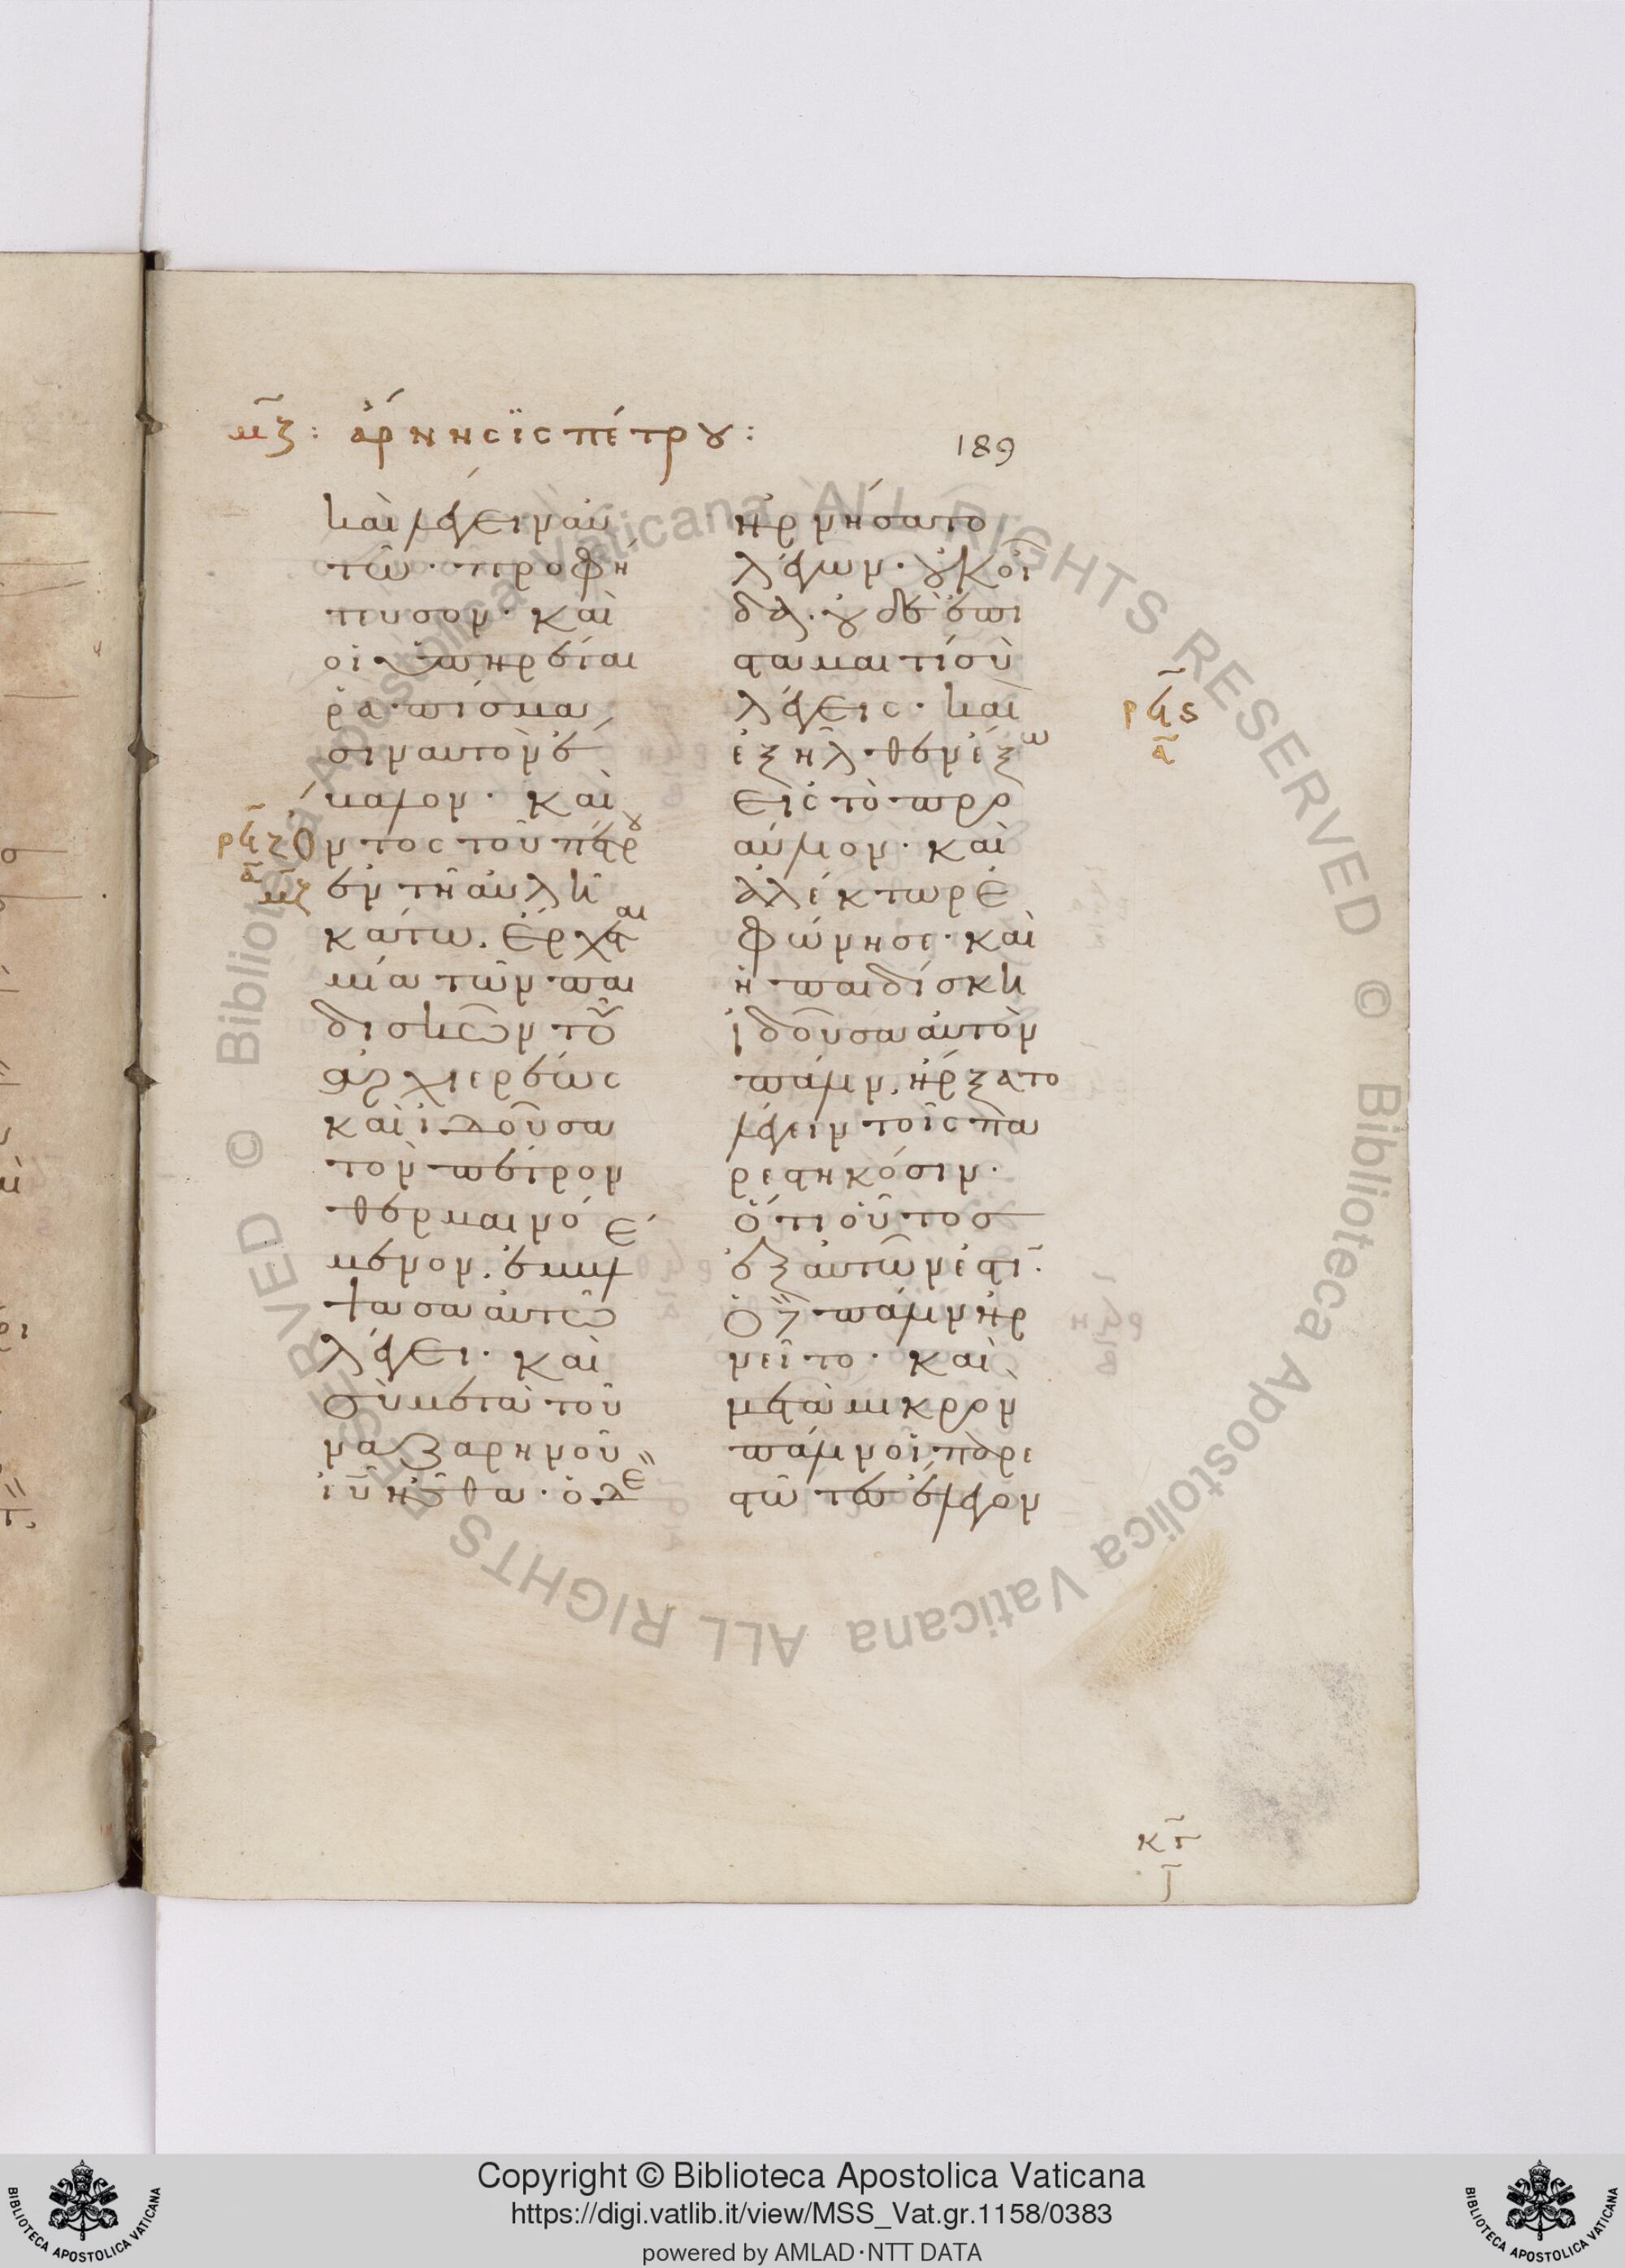 μζ : ἄρνησϊς πέτρου :
189
καὶ λέγειν αὐ
τῶ· προφή
τευσον· καὶ
οἱ ὑπηρέται
ῥαπίσμα
σιν αὐτὸν ἔ
βαλον· καὶ
Ὄντος τοῦ πέτρου
ἐν τῆ αὐλῆ
κάτω. ἔρχεται
μία τῶν παι
δισκῶν τοῦ
ἀρχιερέως
καὶ ἰδοῦσα
τὸν πέτρον
θερμαινό
μενον. ἐμβλέ
ψασα αὐτῶ
λέγει· καὶ
σὺ μετὰ τοῦ
ναζαρηνοῦ
ιῦ ἦσθα· ὁ δὲ
ἠρνήσατο
λέγων· οὐκ οἶ
δα· οὐδὲ ἐπί
σταμαι τί σὺ
λέγεις· καὶ
ἐξῆλθεν ἔξω
εἰς τὸ προ
αύλιον· καὶ
ἀλέκτωρ ἐ
φώνησε· καὶ
ἡ παιδίσκη
ἰδοῦσα αὐτὸν
πάλιν. ἤρξατο
λέγειν τοῖς πα
ρεστηκόσιν·
ὅτι οὗτος
ἐξ αὐτῶν ἐστι·
ὁ δὲ πάλιν ἠρ
νεῖτο· καὶ
μετὰ μικρὸν
πάλιν οἱ παρε
στῶτες ἔλεγον
ρϟζ
α
μζ
ρϟς
α
Copyright © Biblioteca Apostolica Vaticana
https://digi.vatlib.it/view/MSS_Vat.gr.1158/0383
powered by AMLAD·NTT DATA
BIBLIOTECA APOSTOLICA VATICANA
BIBLIOTECA APOSTOLICA VATICANA
© Biblioteca Apostolica Vaticana ALL RIGHTS RESERVED © Biblioteca Apostolica Vaticana ALL RIGHTS RESERVED